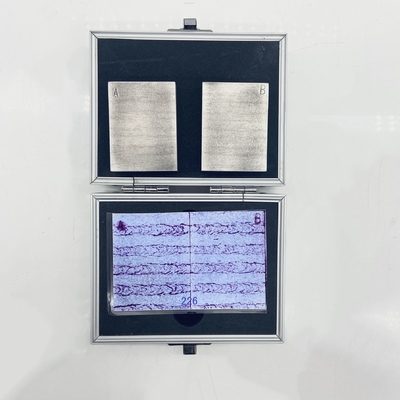 A B
A B
226